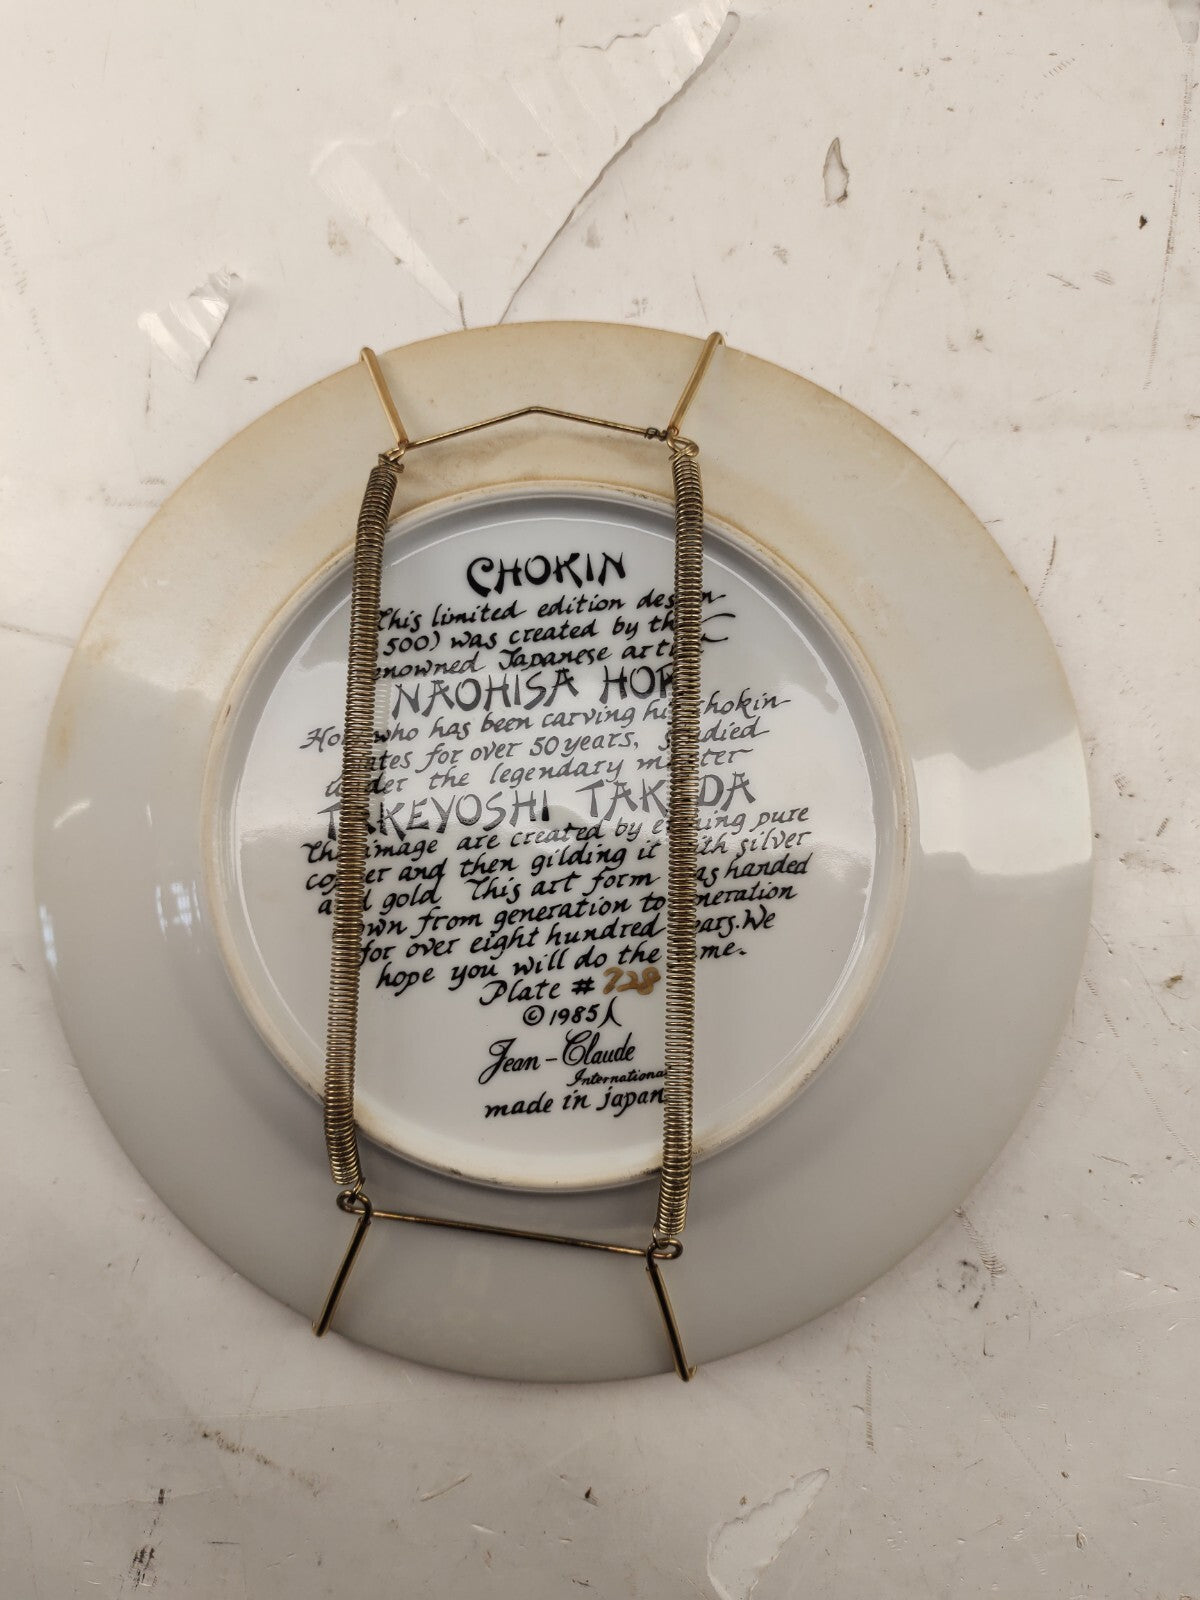 CHOKIN
This limited edition design
500) was created by the
renowned Japanese artist
NAOHISA HORI
Hori who has been carving his chokin
plates for over 50 years, studied
under the legendary master
TAKEYOSHI TAKEDA
The image are created by etching pure
copper and then gilding it with silver
and gold. This art form was handed
down from generation to generation
for over eight hundred years. We
hope you will do the same.
Plate # 728
© 1985
Jean-Claude
International
made in japan